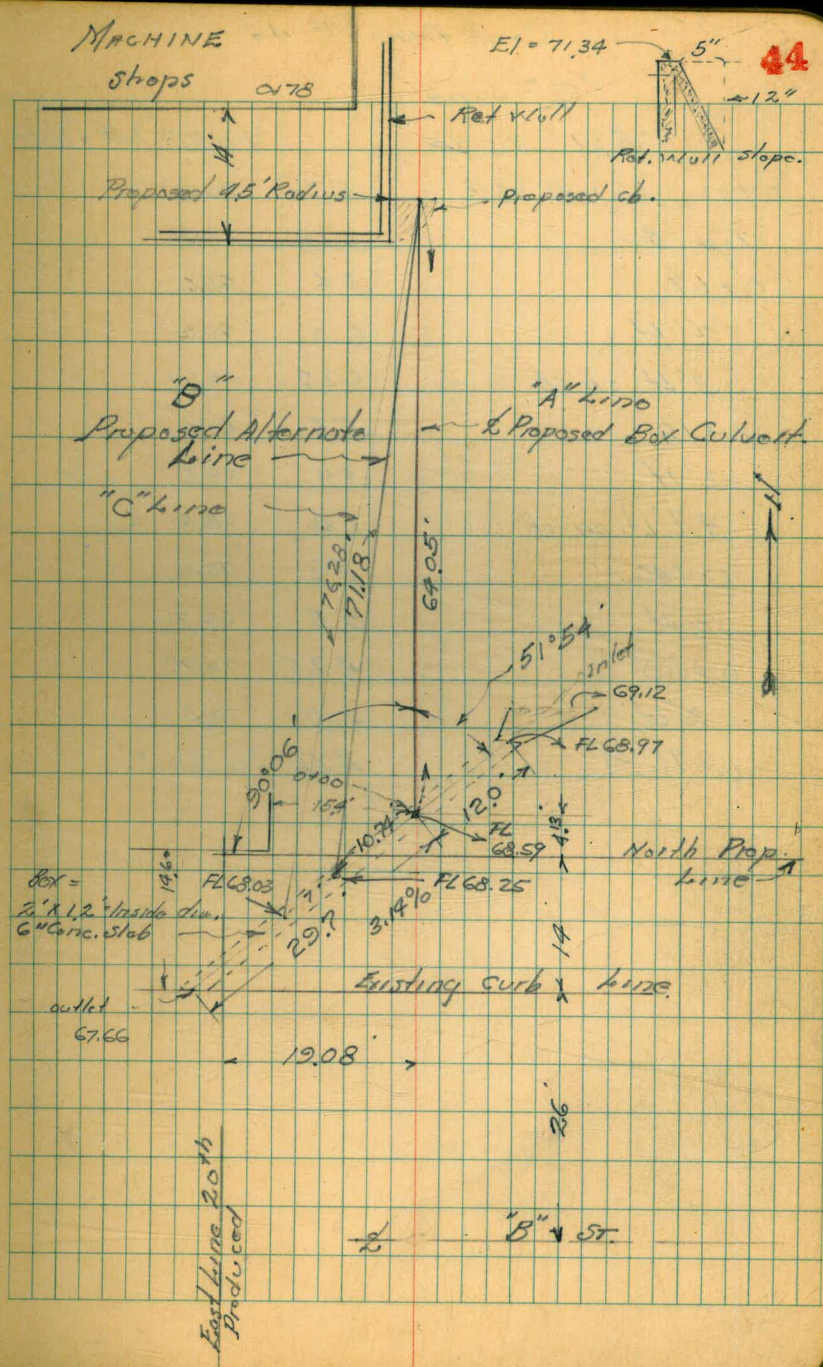 MACHINE
shops
El = 71.34
5"
44
12"
Ret wall
Ret. wall slope.
14'
Proposed 4.5' Radius
Proposed cb.
"B"
Proposed Alternate
Line
"A" Line
℄ Proposed Box Culvert.
"C" Line
76.28'
71.18'
64.05'
N
51°54'
Inlet
69.12
FL 68.97
90°06'
0+00
15.4'
12.0'
10.74'
FL
68.59
4.13
North Prop.
Line
14.60
Box =
2' X 1.2' Inside dia.
6" Conc. Slab
FL 68.03
FL 68.25
29.7
3.14%
14
Existing curb Line
outlet
67.66
19.08'
26'
East Line 20th
Produced
℄ "B" ST.